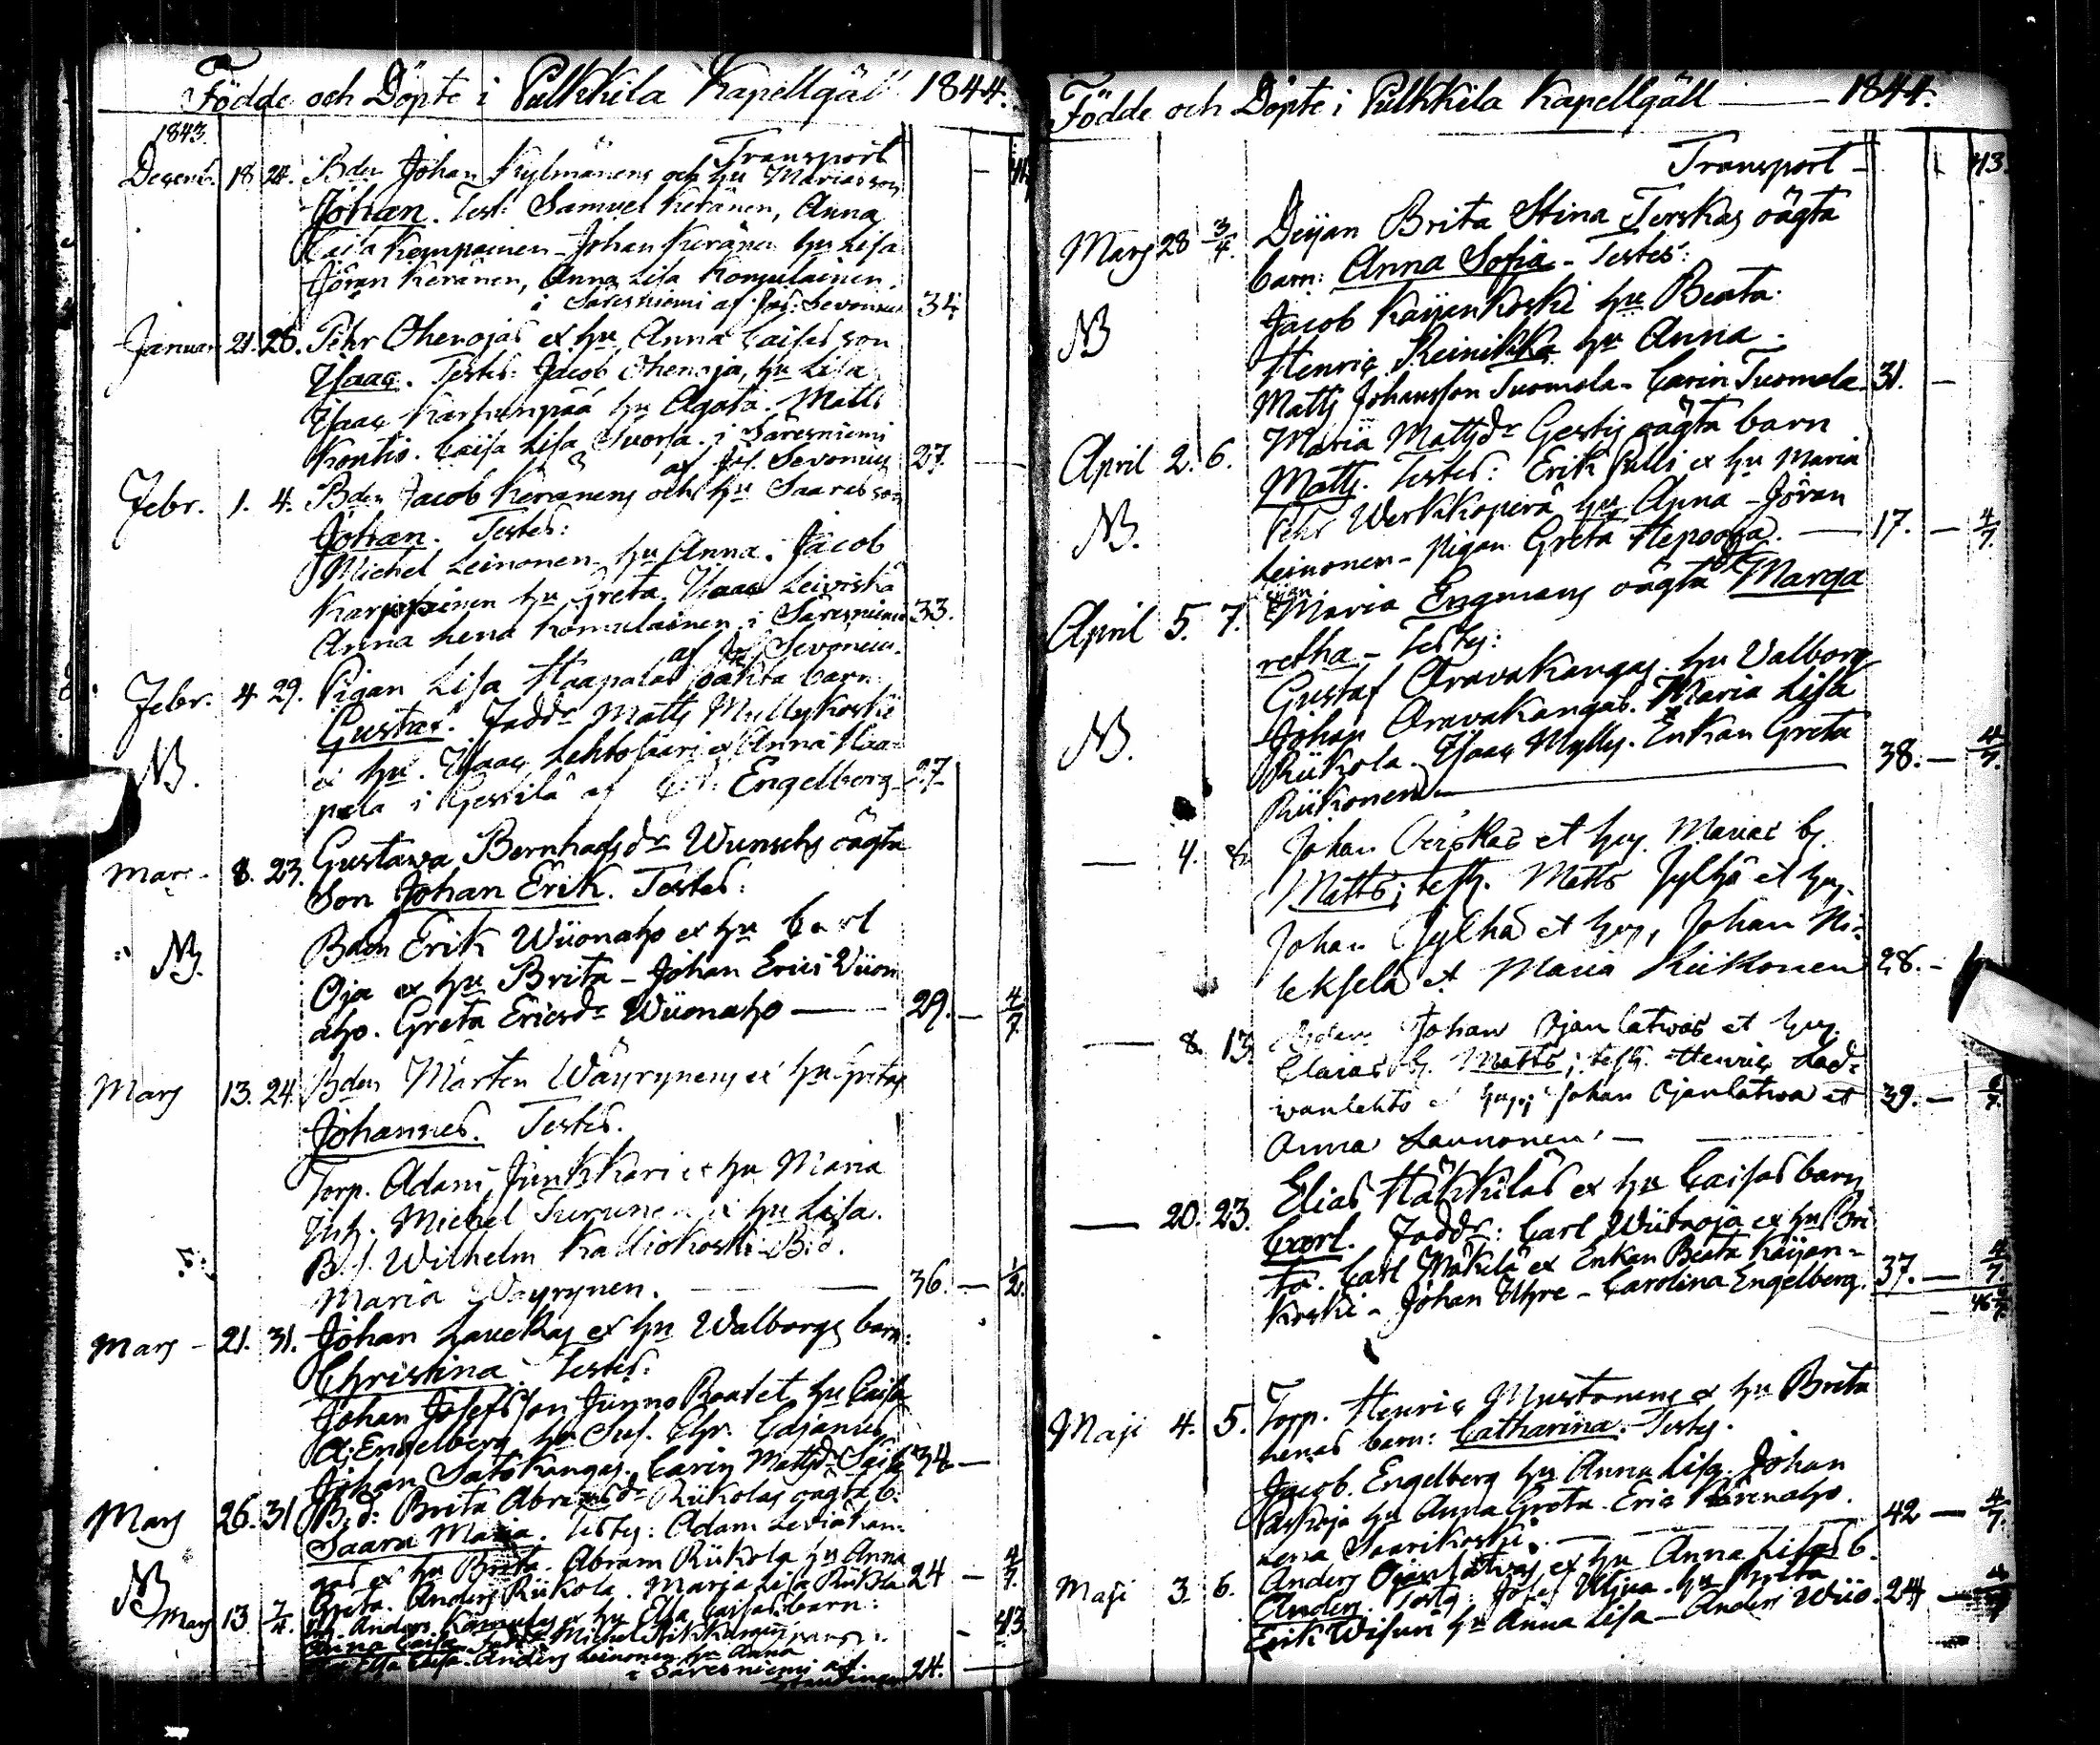 Födde och Döpte i Pulkkila Kapellgäll 1844.
1843.
Transport 41
Decemb. 18 24. Bden Johan Kylmänens och hu Marias son
Johan. Test: Samuel Keränen, Anna
Caisa Kemppainen - Johan Keränen hu Lisa
Jöran Keränen, Anna Lisa Komulainen.
i Säresniemi af Jos: Sevonius 34.
Januari 21. 28. Pehr Ohenojas et hu Anna Caisas son
Isaac. Testes: Jacob Ohenoja, hu Lisa
Isaac Karhunpää hu Agata. Matts
Kontio. Caisa Lisa Svorsa. i Säresniemi
af Jos. Sevonius 27.
Febr. 1. 4. Bden Jacob Keränens och hu Saaras son
Johan. Testes:
Michel Leinonen hu Anna. Jacob
Karjalainen hu Greta. Isaac Leiviskä
Anna Lena Komulainen i Säresniemi 33.
af Jos Sevonius.
Febr. 4 29. Pigan Lisa Haapalas oäkta barn
Gustaf. Faddr Matts Myllykoski
NB. et hu. Isaac Lehtosaari et Anna Haa=
pala i Gestilä af Engelberg 27
Mars 8. 23. Gustava Bernhardsdr Wunschs oägta
Son Johan Erik. Testes:
NB. Bden Erik Wiionaho et hu Carl
Oja et hu Brita - Johan Erics Wiion
aho. Greta Ericsdr Wiionaho — 29. — 4/7
Mars 13. 24. Bden Mårten Wäyrynens et hu Gretas
Johannes. Testes.
Torp. Adam Junkkari et hu Maria
Inh. Michel Turunen et hu Lisa.
B.s. Wilhelm Kalliokoski - B.d.
Maria Wäyrynen. — 36. — 1/2.
Mars - 21. 31. Johan Lauckas et hu Walborgs barn:
Christina. Testes:
Johan Josefsson Junno Rautet, hu Caisa
A: Engelberg hu Sus. Chr. Cajanus
Johan Satokangas, Carin Mattsdr 34 —
Mars 26. 31 B.d: Brita Abramsdr Riikolas oägta b.
Saara Maria. Testes: Adam Leviäkan=
NB gas et hu Brita. Abram Riikola hu Anna
Greta. Anders Riikola. Maria Lisa Riikola 24 — 4/7.
Mars 13 7/4. Anders Komulas et hu Elsa Caisas barn:
Anna Caisa. Michel Transp. — 43
Elsa Caisa. Anders Leinonen hu Anna
i Säresniemi af 24.
Födde och Döpte i Pulkkila Kapellgäll — 1844.
Transport — 43.
Mars 28 3/4. Deijan Brita Stina Terskas oägta
barn: Anna Sofia - Testes:
NB Jacob Käijänkoski hu Beata.
Henric Reinikka hu Anna.
Matts Johansson Tuomela - Carin Tuomela 31. —
April 2. 6. Maria Mattsdr Gestis oägta barn
Matts. Testes: Erik Pulli et hu Maria
NB. Pehr Werkkoperä hu Anna - Jöran
Leinonen - pigan Greta Hepooja. — 17. — 4/7.
April 5. 7. Maria Engmans oägta Marga
retha - Testes:
Gustaf Aravakangas hu Valborg
NB. Johan Aravakangas. Maria Lisa
Riikola. Isaac Mylly. Enkan Greta
Riikonen — 38. — 4/7.
— 4. 8. Johan Oriskas et huj. Marias b.
Matts; test. Matts Jylhä et huj.
Johan Jylhä et huj, Johan Ni=
leksela et Maria Riikonen 28. —
— 8. 13. Johan Ojanlatwas et huj.
Claras b. Matts; test. Henric Lad=
wanlehto et huj; Johan Ojanlatwa et 39. — 4/7.
Anna Launonen. —
— 20. 23. Elias Häkkiläs et hu Caisas barn
Carl. Faddr: Carl Wiitaoja et hu Bri
ta. Carl Mäkilä et Enkan Beata Käijän=
koski - Johan Uhre - Carolina Engelberg. 37. — 4/7.
— 46
Maji 4. 5. Torp. Henric Mustonens et hu Brita
Lenas barn: Catharina. Testes.
Jacob Engelberg hu Anna Lisa. Johan
Askoja hu Anna Greta. Eric
Lena Saarikoski. — 42 — 4/7.
Maji 3 6. Anders Ojanlatvas et hu Anna Lisas b.
Anders. Testes: Josef Uljua - hu Brita
Erik Wisuri hu Anna Lisa - Anders Wiio- 24 — 4/7